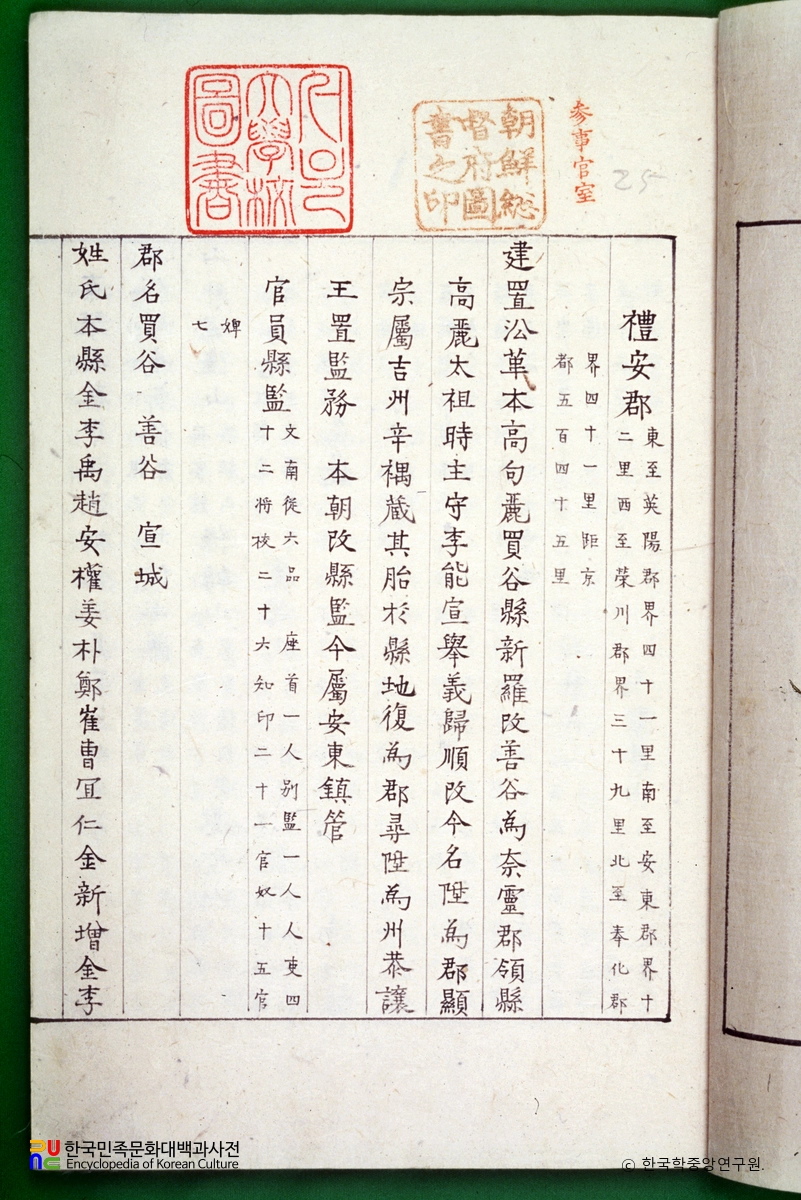 参事官室
25
朝鮮総
督府圖
書之印
서울
大學校
圖書
禮安郡
東至英陽郡界四十一里南至安東郡界十
二里西至榮川郡界三十九里北至奉化郡
界四十一里距京
都五百四十五里
建置沿革本高句麗買谷縣新羅改善谷為奈靈郡領縣
高麗太祖時主守李能宣舉義歸順改今名陞為郡顯
宗屬吉州辛禑藏其胎於縣地復為郡尋陞為州恭讓
王置監務 本朝改縣監今屬安東鎮管
官員縣監
文南從六品 座首一人別監一人人吏四
十二將校二十六知印二十一官奴十五官
婢
七
郡名買谷 善谷 宣城
姓氏本縣金李禹趙安權姜朴鄭崔曹冝仁金新增金李
한국민족문화대백과사전
Encyclopedia of Korean Culture
© 한국학중앙연구원.